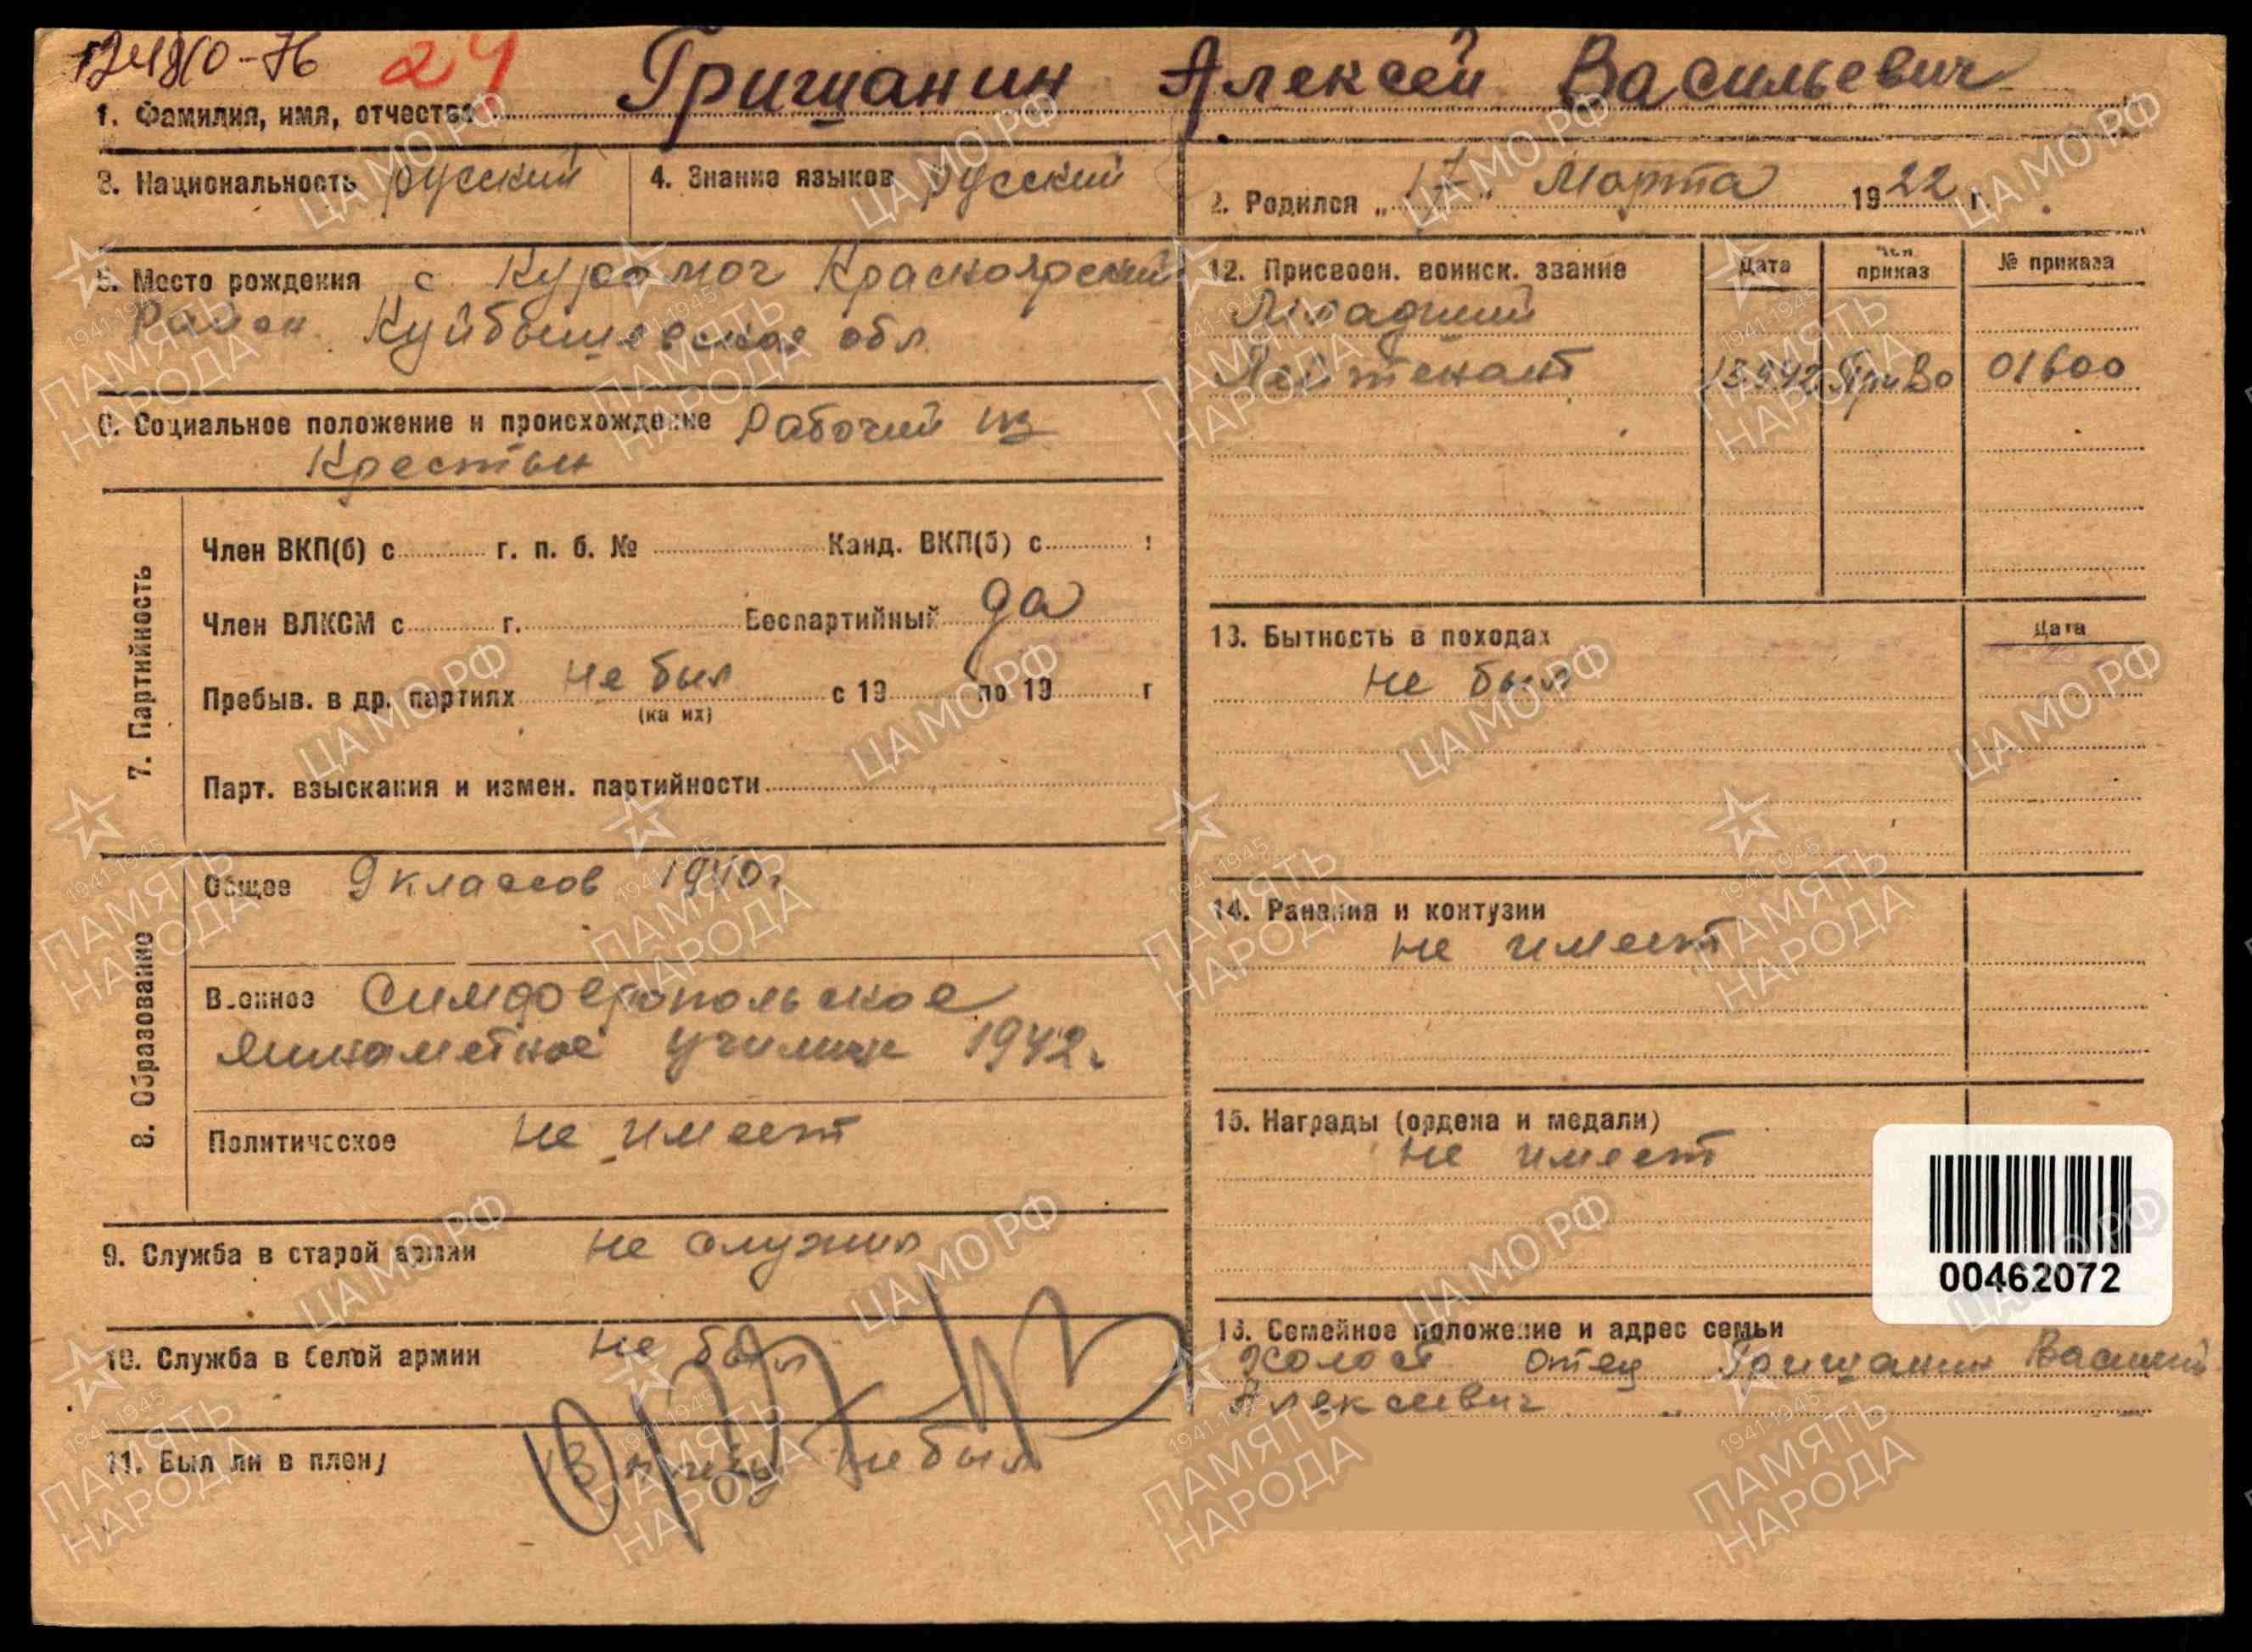 24
Грищанин Алексей Васильевич
1. Фамилия, имя, отчество
3. Национальность русский
4. Знание языков русский
2. Родился „ 17 " Марта 1922 г.
5. Место рождения с Курамоч Красноярский
Район Куйбышевская обл.
6. Социальное положение и происхождение Рабочий из
Крестьян
7. Партийность
Член ВКП(б) с г. п. б. № Канд. ВКП(б) с
Член ВЛКСМ с г. Беспартийный да
Пребыв. в др. партиях не был с 19 по 19 г
Парт. взыскания и измен. партийности
8. Образование
Общее 9 классов 1940г
Военное Симферопольское
Минаметное 1942г.
Политическое не имеет
9. Служба в старой армии не служил
10. Служба в белой армии не был
11. Был ли в плену В плену не был
12. Присвоен. воинск. звание Дата Чей приказ № приказа
Младший
Лейтенант ПриВо 01600
13. Бытность в походах Дата
не был
14. Ранения и контузии
не имеет
15. Награды (ордена и медали)
не имеет
00462072
16. Семейное положение и адрес семьи
Холост отец Грищанин Василий
Алексеевич
ЦАМО.РФ
1941-1945
ПАМЯТЬ
НАРОДА